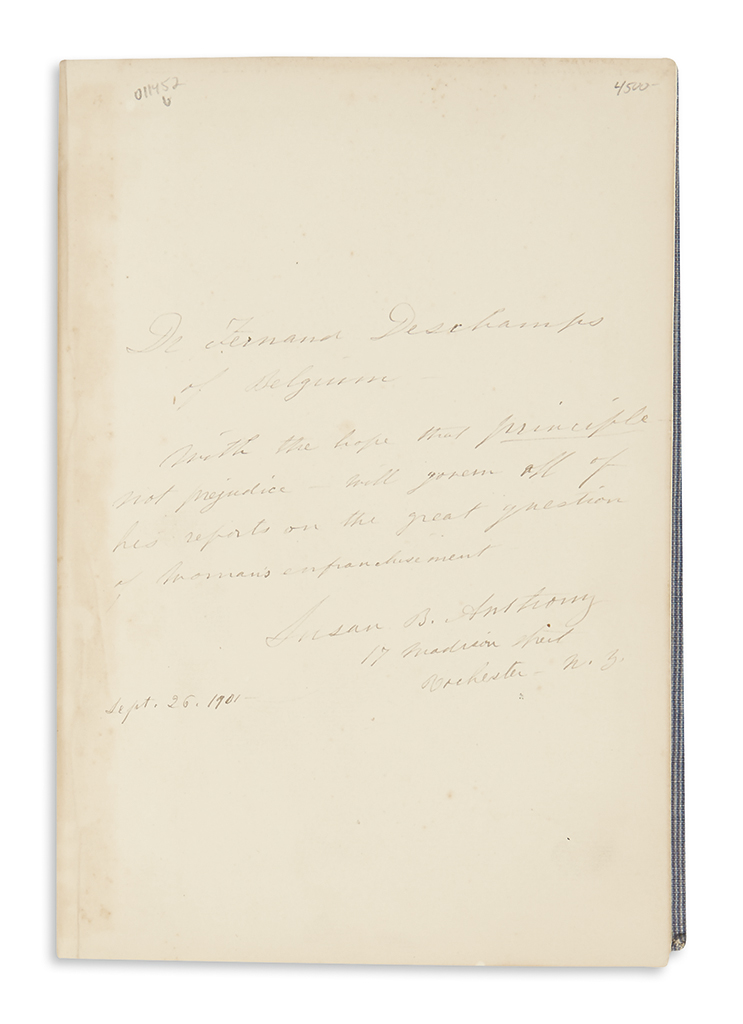 011452
v
4500-
Dr Fernand Deschamps
of Belgium -
With the hope that principle -
not prejudice - will govern all of
his reports on the great question
of Woman's enfranchisement
Susan B. Anthony
17 Madison Street
Rochester - N. Y.
Sept. 26. 1901 -